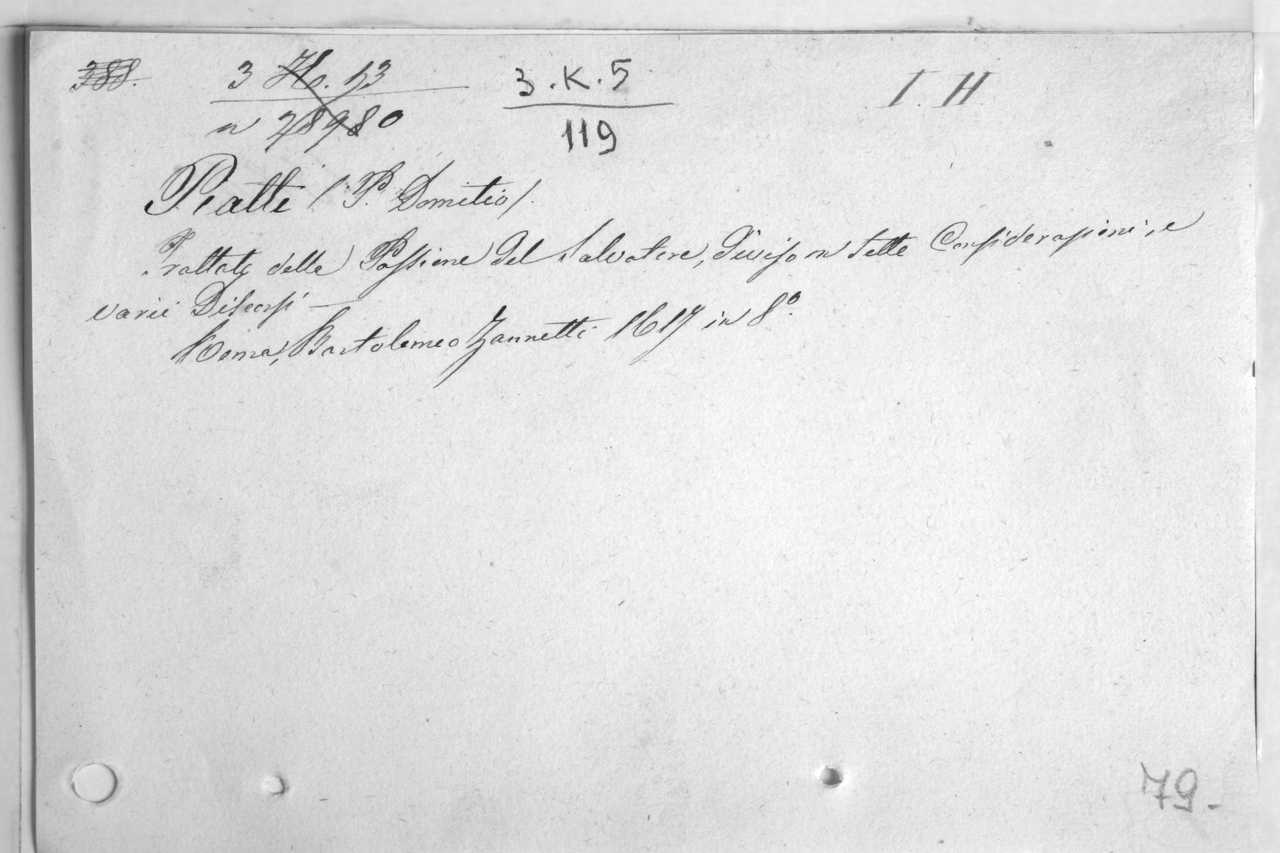 388. 3 H. 53 3.K.5 I. H
n 28980 119
Piatti (P. Domitio).
Trattato della Passione del Salvatore, diviso in sette Considerazioni, e
varii Discorsi —
Roma, Bartolomeo Zannetti 1617 in 8º.
79.